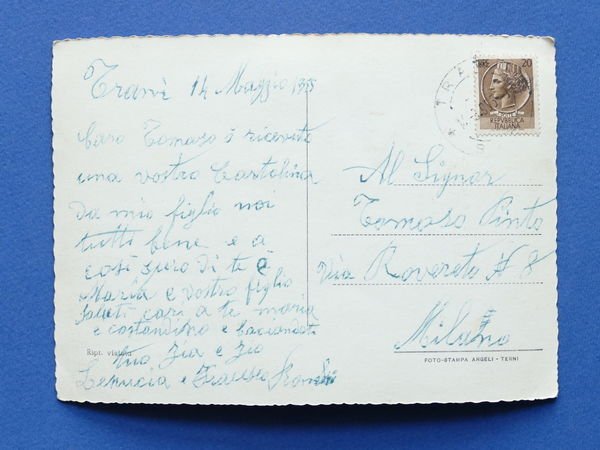 Trani 14 Maggio 1955
Caro Tomaso ò ricevuto
una vostra Cartolina
da mio figlio noi
tutti bene e a
così spero di te e
Maria e vostro figlio
saluti cari a te maria
e costandino e baciandoti
tuo zia e zio
Lenucia e Francesco
Ript. vietata
L. 20
POSTE
REPVBBLICA
ITALIANA
TRA
Al Signor
Tomaso Pinto
Via Rovereto N 8
Milano
FOTO-STAMPA ANGELI - TERNI